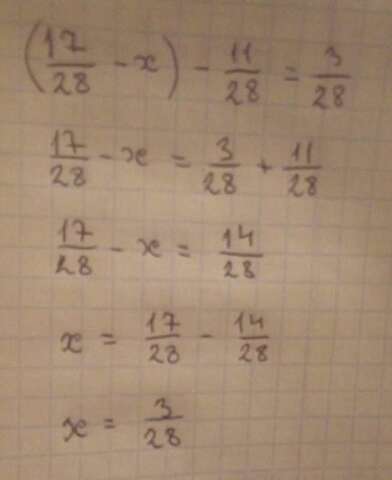 (17/28 - x) - 11/28 = 3/28
17/28 - x = 3/28 + 11/28
17/28 - x = 14/28
x = 17/28 - 14/28
x = 3/28